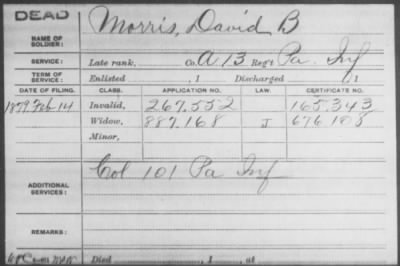 DEAD
NAME OF SOLDIER: Morris, David B
SERVICE: Late rank, Co. A 13 Reg't Pa. Inf
TERM OF SERVICE: Enlisted , 1 Discharged , 1
DATE OF FILING. CLASS. APPLICATION NO. LAW. CERTIFICATE NO.
1879 Feb 14 Invalid, 267.552 165.343
Widow, 887.168 J 676.108
Minor,
ADDITIONAL SERVICES: Col 101 Pa Inf
REMARKS:
Died , 1 , at